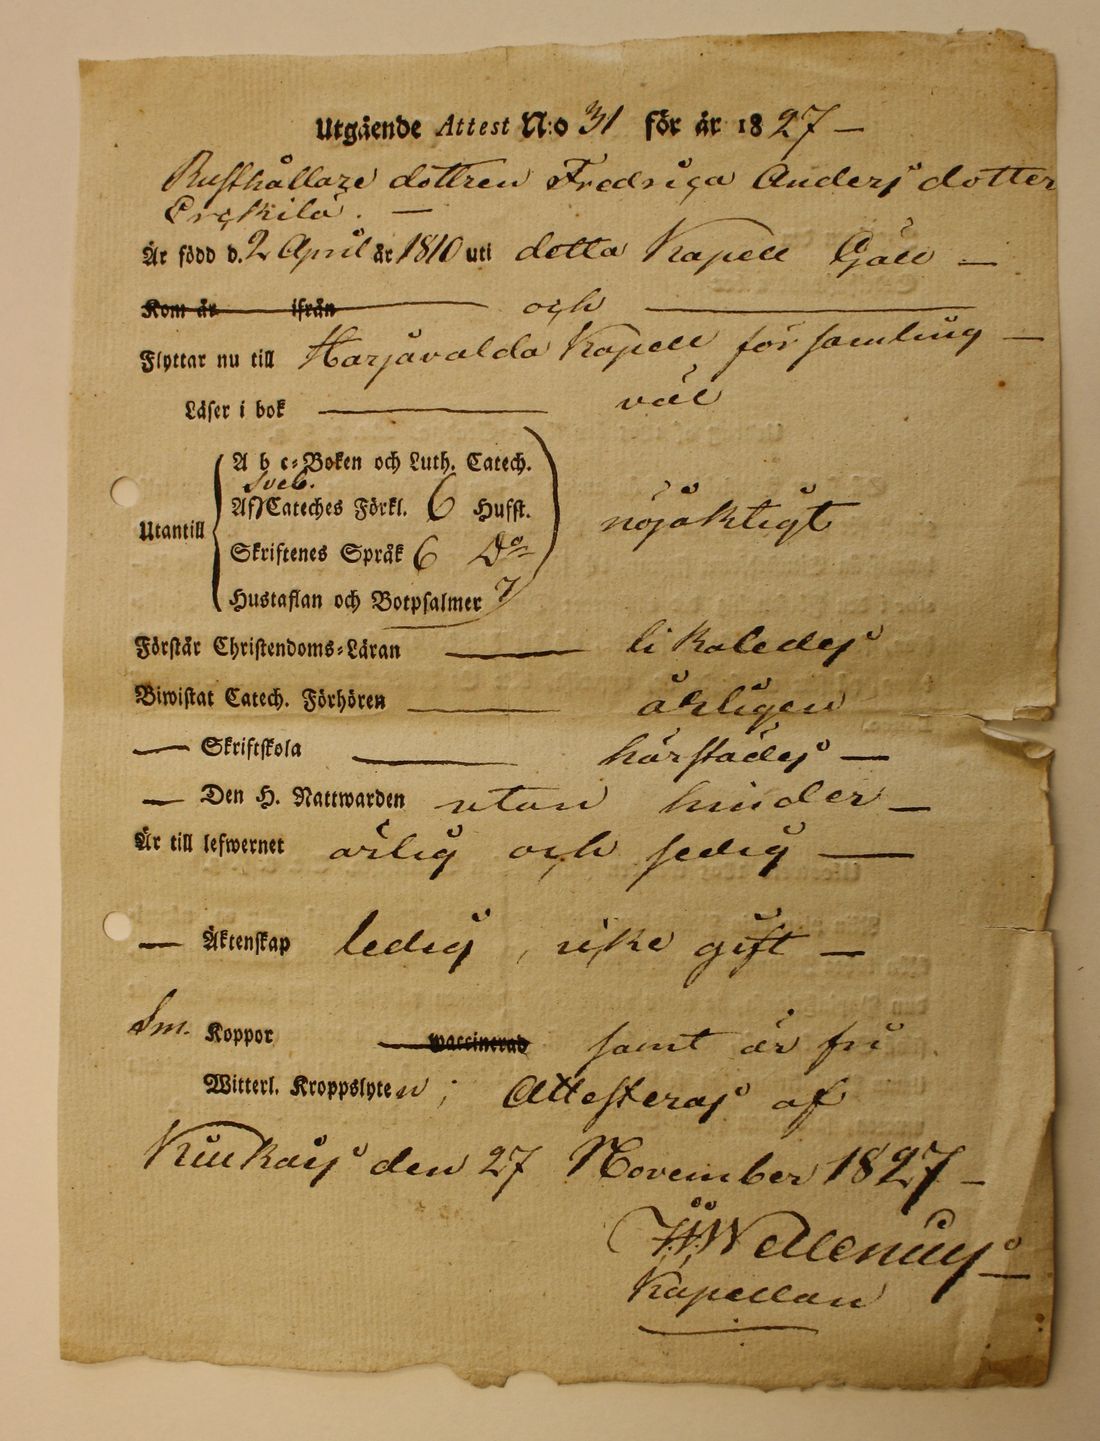 Utgående Attest N:o 31 för år 1827 —
Rusthållare dottren Fredrica Anders dotter
Erckilä. —
Är född d. 2 April år 1810 uti detta Kapell Gäll —
Kom år ifrån och
Flyttar nu till Harjavalda Kapell församling —
Läser i bok — väl
A b c-Boken och Luth. Catech.
Sveb.
Utantill Af) Cateches Förkl. 6 Hufst. nöjaktigt
Skriftenes Språk 6 Do
Hustaflan och Botpsalmer 7
Förstår Christendoms-Läran — likaledes
Biwistat Catech. Förhören — årligen
— Skriftskola — härstädes —
— Den H. Nattwarden utan hinder —
Är till lefwernet ärlig och sedig —
— Äktenskap ledig, icke gift —
Sm. Koppor waccinerad samt är fri
Witterl. Kroppslyten; Attesteras af
Kiukais den 27 November 1827 —
Wallenius
Kapellan